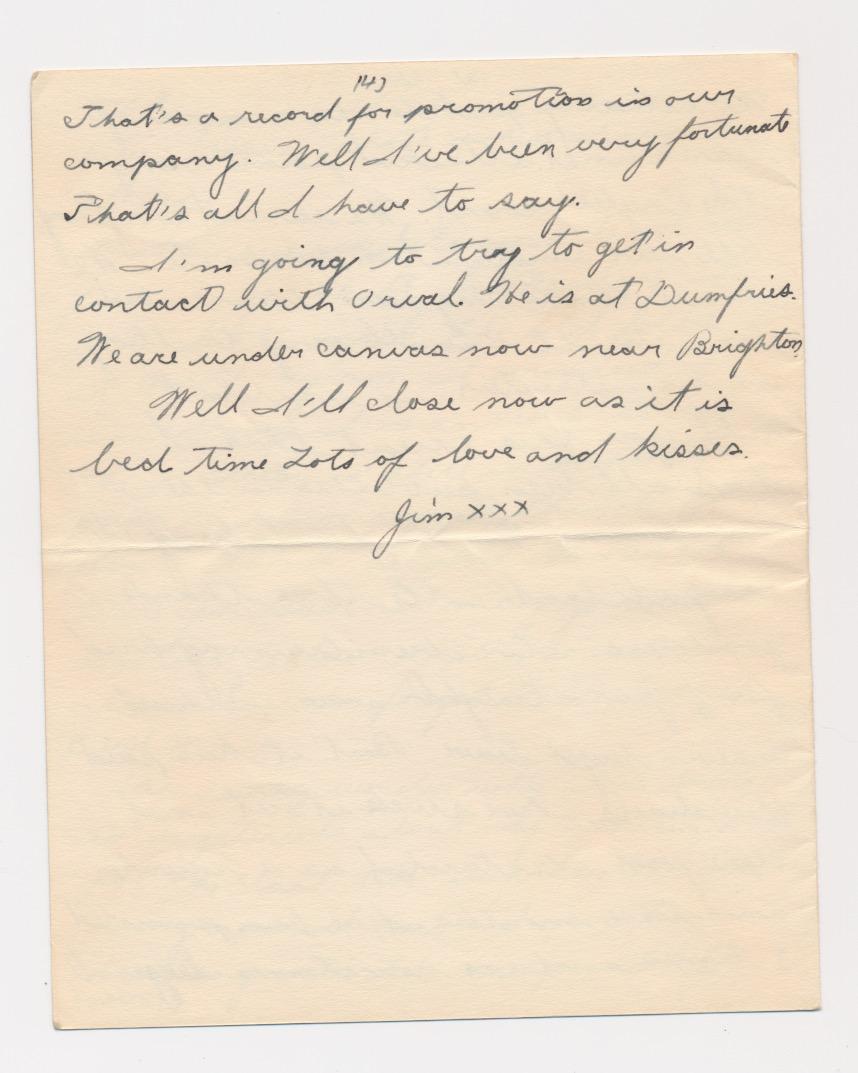 14)
That's a record for promotion in our
company. Well I've been very fortunate
That's all I have to say.
I'm going to try to get in
contact with Orval. He is at Dumfries.
We are under canvas now near Brighton.
Well I'll close now as it is
bed time Lots of love and kisses.
Jim xxx